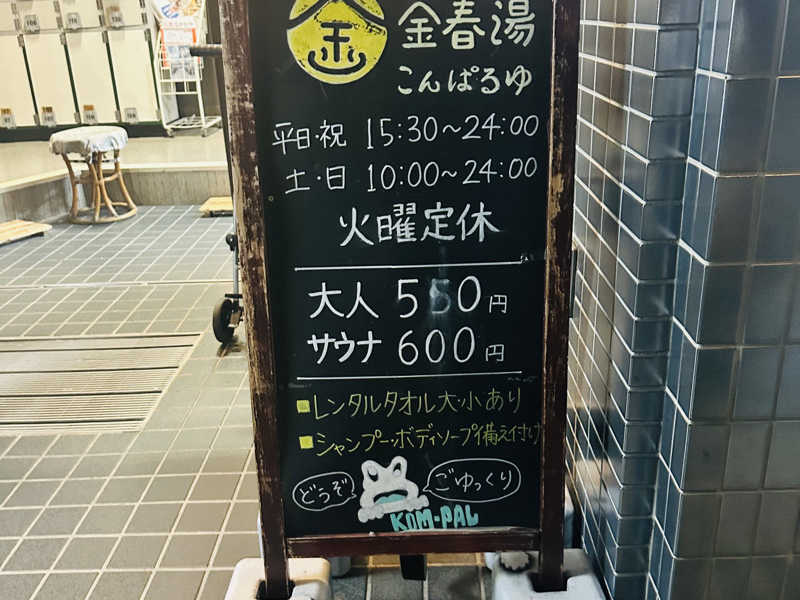 金
金春湯
こんぱるゆ
平日・祝 15:30～24:00
土・日 10:00～24:00
火曜定休
大人 550円
サウナ 600円
レンタルタオル大・小あり
シャンプー・ボディソープ備え付け
どうぞ
ごゆっくり
KOM・PAL